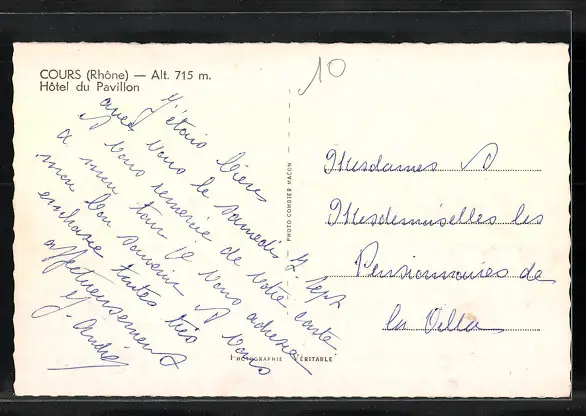 COURS (Rhône) — Alt. 715 m.
Hôtel du Pavillon
10
J'étais bien
avec vous le samedi 7 Sept
vous remercie de votre carte
à mon tour je vous adresse
mon bon souvenir & vous
embrasse toutes très
affectueusement
J. André
PHOTO COMBIER MACON
Mesdames &
Mesdemoiselles les
Pensionnaires de
la Villa
PHOTOGRAPHIE VÉRITABLE